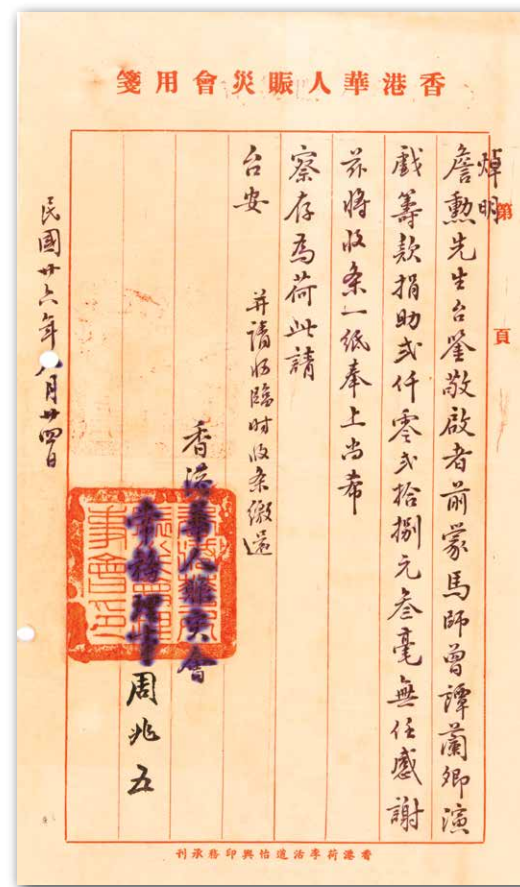 香港華人賑災會用箋
第 頁
焯明
詹勲先生台鉴敬啟者前蒙馬師曾譚蘭卿演
戲籌款捐助弍仟零弍拾捌元叁毫無任感謝
茲將收条一紙奉上尚希
察存為荷此請
台安
并請將臨時收条繳還
香港華人賑災會
常務理事周兆五
民國廿六年八月廿四日
香港荷李活道怡興印務承刊